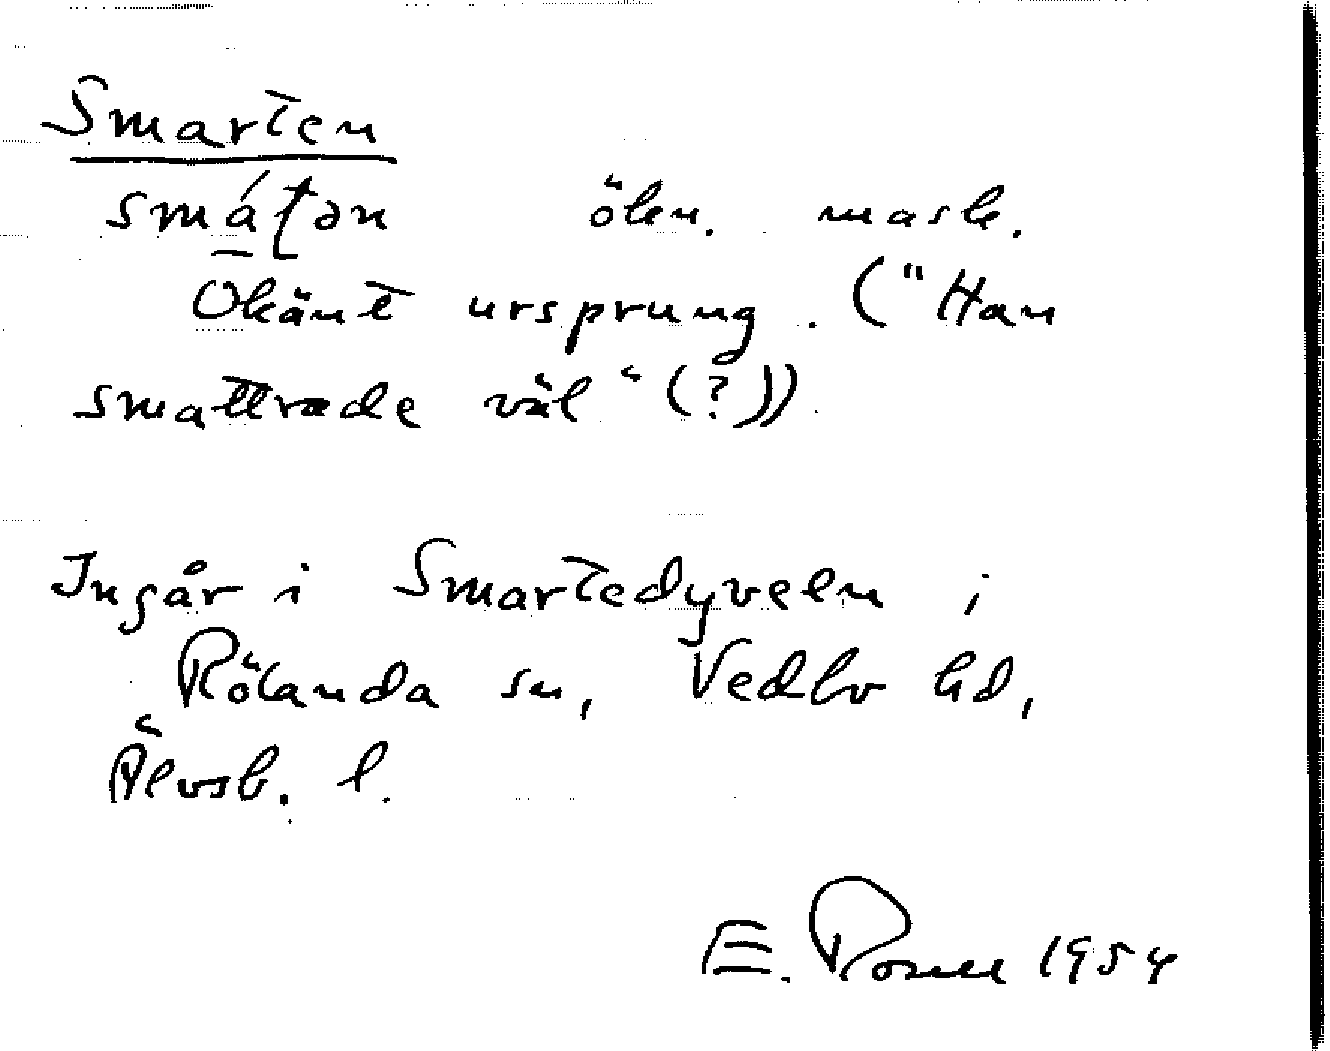 Smarten
smáʈən ökn. mask.
Okänt ursprung. ("Han
smattrade väl" (?))
Ingår i Smartedyveln i
Rölanda sn, Vedbo hd,
Älvsb. l.
E. 1954